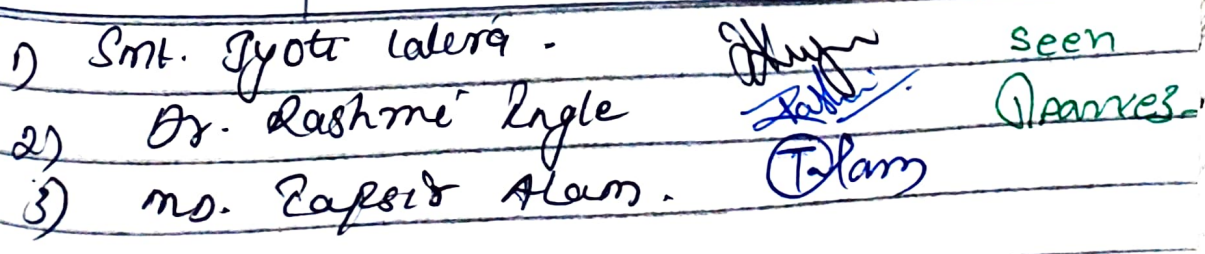 1) Smt. Jyoti Lalera. seen
2) Dr. Rashmi Ingle
3) Ms. Tafsir Alam. T.Alam